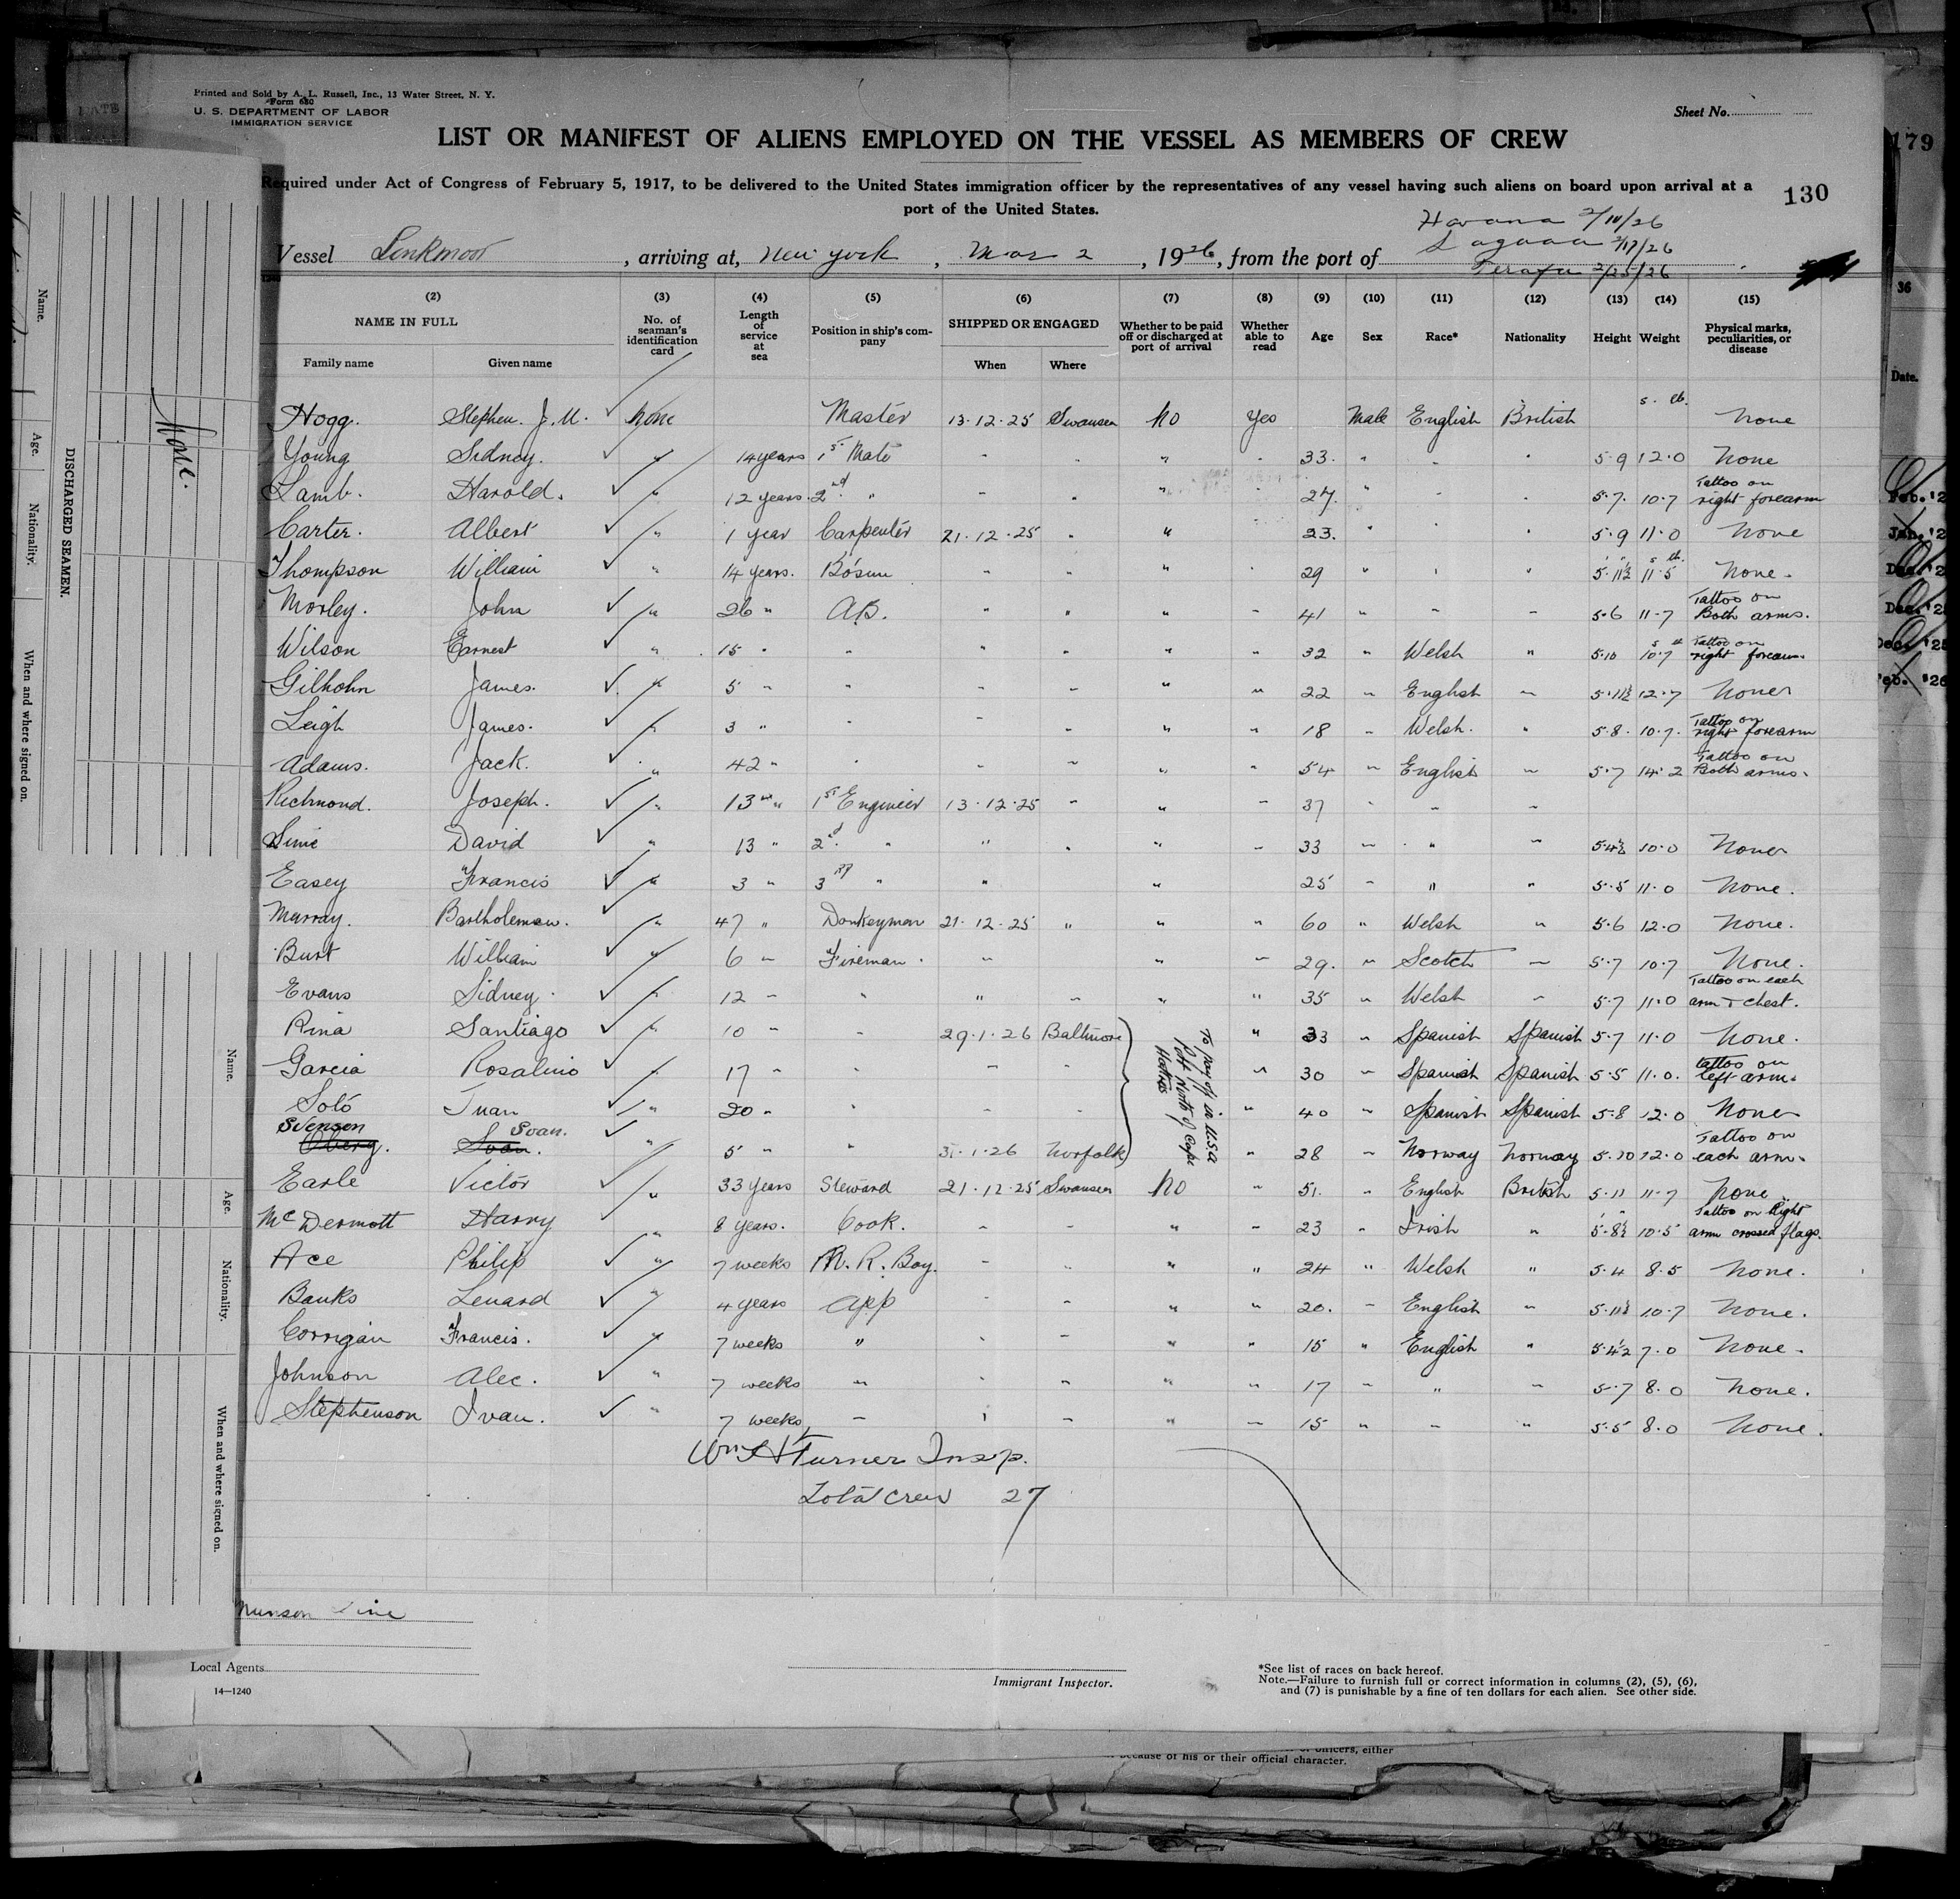 Printed and Sold by A. L. Russell, Inc., 13 Water Street, N. Y.
Form 680
U. S. DEPARTMENT OF LABOR
IMMIGRATION SERVICE
Sheet No.
LIST OR MANIFEST OF ALIENS EMPLOYED ON THE VESSEL AS MEMBERS OF CREW
179
Required under Act of Congress of February 5, 1917, to be delivered to the United States immigration officer by the representatives of any vessel having such aliens on board upon arrival at a
port of the United States.
130
Havana 2/10/26
Sagua 2/17/26
Vessel Linkmoor, arriving at, New York, Mar 2, 1926, from the port of
2/25/26
(2) (3) (4) (5) (6) (7) (8) (9) (10) (11) (12) (13) (14) (15)
NAME IN FULL No. of seaman's identification card Length of service at sea Position in ship's company SHIPPED OR ENGAGED Whether to be paid off or discharged at port of arrival Whether able to read Age Sex Race* Nationality Height Weight Physical marks, peculiarities, or disease
Family name Given name When Where
s. lb.
Hogg. Stephen. J. None Master 13.12.25 Swansea No Yes Male English British None
Young Sidney. " 14 years 1st Mate " " " " 33. " " " 5.9 12.0 None
Lamb. Harold. " 12 years. 2nd " " " " " 27. " " " 5.7. 10.7 Tattoo on right forearm
Carter. Albert " 1 year Carpenter 21.12.25 " " 23. " " " 5.9 11.0 None
Thompson William " 14 years. Bosun " " " " 29 " " " 5.11½ 11.5 None.
Morley. John " 26 " A.B. " " " " 41 " " " 5.6 11.7 Tattoo on Both arms.
Wilson Earnest " 15 " " " " " " 32 " Welsh " 5.10 10.7 Tattoo on right forearm.
Gilhohn James. " 5 " " " " " " 22 " English " 5.11½ 12.7 None
Leigh James. " 3 " " " " " " 18 " Welsh. " 5.8. 10.7. Tattoo on right forearm
Adams. Jack. " 42 " " " " " " 54 " English " 5.7 14.2 Tattoo on Both arms.
Richmond. Joseph. " 13 " 1st Engineer 13.12.25 " " " 37 " " "
David " 13 " 2nd " " " " " 33 " " " 5.4½ 10.0 None
Easey Francis " 3 " 3rd " " " 25 " " " 5.5 11.0 None.
Murray. Bartholemew. " 47 " Donkeyman 21.12.25 " " " 60 " Welsh " 5.6 12.0 None.
Burt William " 6 " Fireman. " " " 29. " Scotch " 5.7 10.7 None.
Evans Sidney. " 12 " " " " " " 35 " Welsh " 5.7 11.0 Tattoo on each arm + chest.
Rina Santiago " 10 " " 29.1.26 Baltimore To pay off in U.S.A Port North of Cape Hatteras " 33 " Spanish Spanish 5.7 11.0 None.
Garcia Rosalino " 17 " " " " " 30 " Spanish Spanish 5.5 11.0. tattoo on left arm.
Soto Juan " 20 " " " " " 40 " Spanish Spanish 5.8 12.0 None
Svenson Svan.
Oberg. Svan. " 5 " " 31.1.26 Norfolk " 28 " Norway Norway 5.10 12.0 Tattoo on each arm.
Earle Victor " 33 years Steward 21.12.25 Swansea No " 51. " English British 5.11 11.7 None.
McDermott Harry " 8 years. Cook. " " " " 23 " Irish " 5.8½ 10.5 Tattoo on Right arm crossed flags.
Ace Philip " 7 weeks M. R. Boy. " " " " 24 " Welsh " 5.4 8.5 None.
Banks Lenard " 4 years App " " " " 20. " English " 5.11½ 10.7 None.
Corrigan Francis. " 7 weeks " " " " " 15 " English " 5.4½ 7.0 None.
Johnson Alec. " 7 weeks " " " " " 17 " " " 5.7 8.0 None.
Stephenson Ivan. " 7 weeks " " " " " 15 " " " 5.5 8.0 None.
Wm H Turner Insp.
Total Crew 27
Munson Line
Local Agents
14—1240
Immigrant Inspector.
*See list of races on back hereof.
Note.—Failure to furnish full or correct information in columns (2), (5), (6),
and (7) is punishable by a fine of ten dollars for each alien. See other side.
because of his or their official character.
DISCHARGED SEAMEN.
Name. Age. Nationality. When and where signed on.
None.
Name. Age. Nationality. When and where signed on.
36
Date.